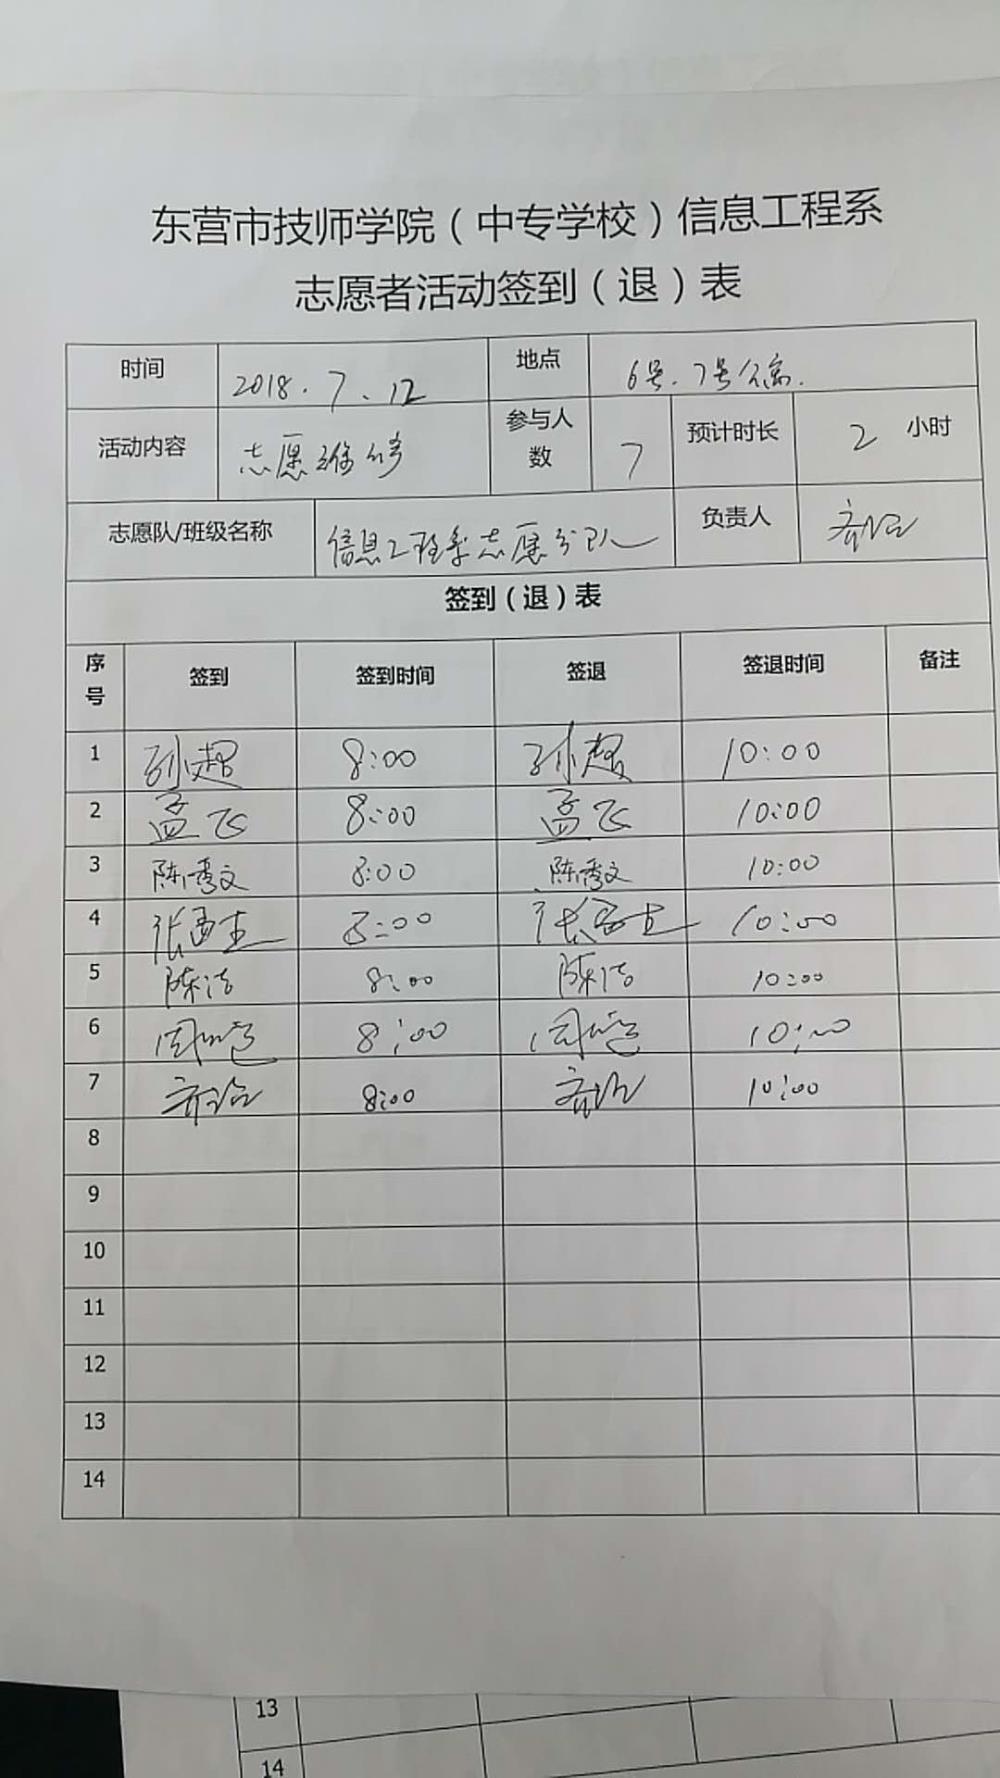 东营市技师学院（中专学校）信息工程系
志愿者活动签到（退）表
时间 2018.7.12 地点 6号.7号公寓.
活动内容 志愿维修 参与人数 7 预计时长 2 小时
志愿队/班级名称 信息工程系志愿分队 负责人
签到（退）表
序号 签到 签到时间 签退 签退时间 备注
1 孙超 8:00 孙超 10:00
2 孟飞 8:00 孟飞 10:00
3 陈秀文 8:00 陈秀文 10:00
4 8:00 10:00
5 陈洁 8:00 陈洁 10:00
6 8:00 10:00
7 8:00 10:00
8
9
10
11
12
13
14
13
14